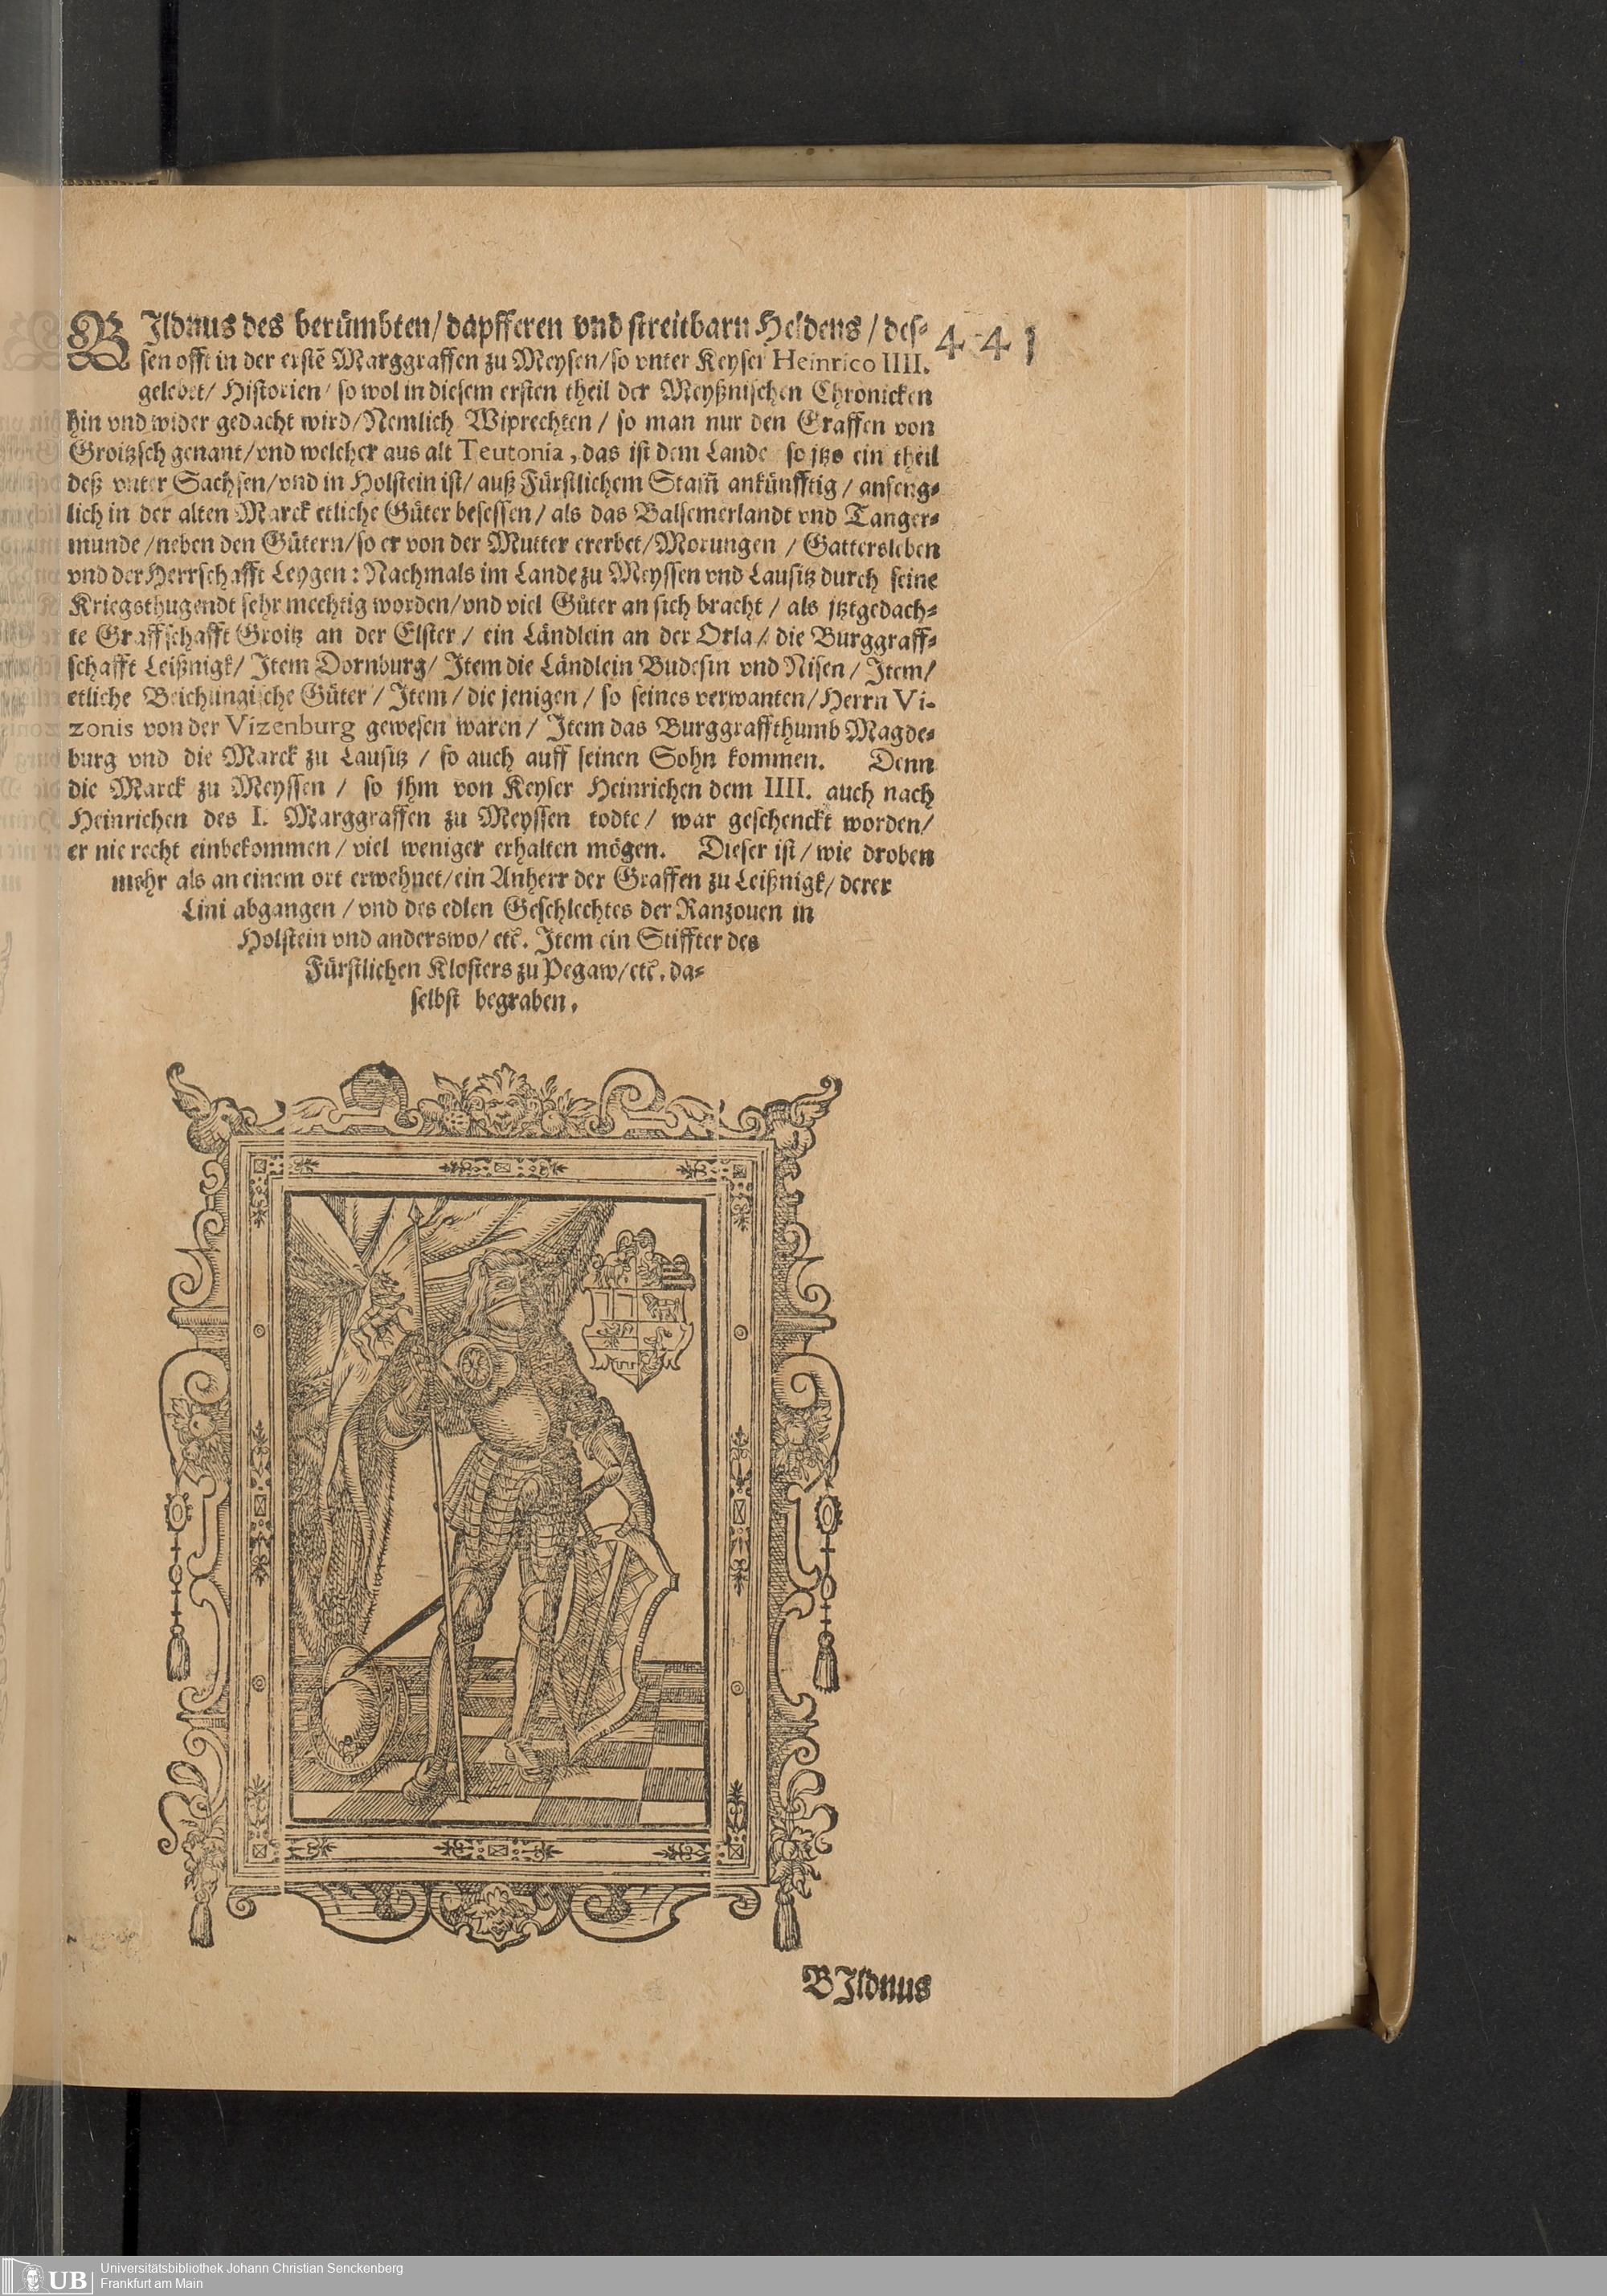 BIldnus des berümbten/ dapfferen vnd streitbarn Heldens / des-
441
sen offt in der erstẽ Marggraffen zu Meysen/ so vnter Keyser Heinrico IIII.
gelebet/ Historien/ so wol in diesem ersten theil der Meyßnischen Chronicken
hin vnd wider gedacht wird/ Nemlich Wiprechten / so man nur den Graffen von
Groitzsch genant/ vnd welcher aus alt Teutonia, das ist dem Lande so jtzo ein theil
deß vnter Sachsen/ vnd in Holstein ist/ auß Fürstlichem Stam̃ ankünfftig / anfeng-
lich in der alten Marck etliche Güter besessen/ als das Balsemerlandt vnd Tanger-
munde /neben den Gütern/ so er von der Mutter ererbet/ Morungen / Gattersleben
vnd der Herrschafft Leygen: Nachmals im Lande zu Meyssen vnd Lausitz durch seine
Kriegsthugendt sehr mechtig worden/ vnd viel Güter an sich bracht / als jtztgedach-
te Graffschafft Groitz an der Elster / ein Ländlein an der Orla / die Burggraff-
schafft Leißnigk/ Item Dornburg/ Item die Ländlein Budesin vnd Nisen / Item/
etliche Beichlingische Güter / Item / die jenigen / so seines verwanten/ Herrn Vi-
zonis von der Vizenburg gewesen waren / Item das Burggraffthumb Magde-
burg vnd die Marck zu Lausitz / so auch auff seinen Sohn kommen. Denn
die Marck zu Meyssen / so jhm von Keyser Heinrichen dem IIII. auch nach
Heinrichen des I. Marggraffen zu Meyssen todte / war geschenckt worden/
er nie recht einbekommen / viel weniger erhalten mögen. Dieser ist / wie droben
mehr als an einem ort erwehnet/ ein Anherr der Graffen zu Leißnigk/ derer
Lini abgangen / vnd des edlen Geschlechtes der Ranzouen in
Holstein vnd anderswo/ etc̃. Item ein Stiffter des
Fürstlichen Klosters zu Pegaw/ etc̃. da-
selbst begraben.
BIldnus
UB Universitätsbibliothek Johann Christian Senckenberg
Frankfurt am Main